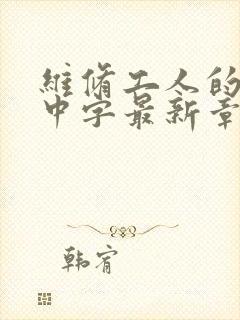 維脩工人的
中字最新章
韩宥